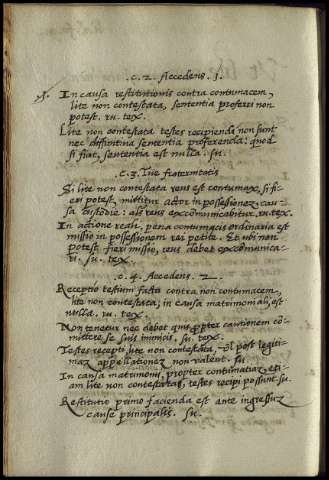 .c. 2. Accedens. 1.
In causa restitutionis contra contumacem,
lite non contestata, sententia proferri non
potest. ru. tex.
Lite non contestata testes recipiendi non sunt
nec diffinitiua sententia proferenda: quod
si fiat, sententia est nulla. su.
.c. 3. Tue fraternitatis
Si lite non contestata reus est contumax, si fi-
eri potest mittitur actor in possessionem causa
custodie: als reus excommunicabitur. ru. tex.
In actione reali, pena contumacis ordinaria est
missio in possessionem rei petite. Et ubi non
potest fieri missio, reus debet excommunica-
ri. su. tex.
.c. 4. Accedens. 2
Receptio testium facta contra non contumacem,
lite non contestata, in causa matrimoniali, est
nulla. ru. tex.
Non tenetur nec debet quis propter cautionem com-
mittere se suis inimicis. su. tex.
Testes recepti lite non contestata, post legiti-
mam appellationem non valent. su.
In causa matrimonii, propter contumatiam, eti-
am lite non contestata, testes recipi possunt. su.
Restitutio primo facienda est ante ingressum
cause principalis. su.